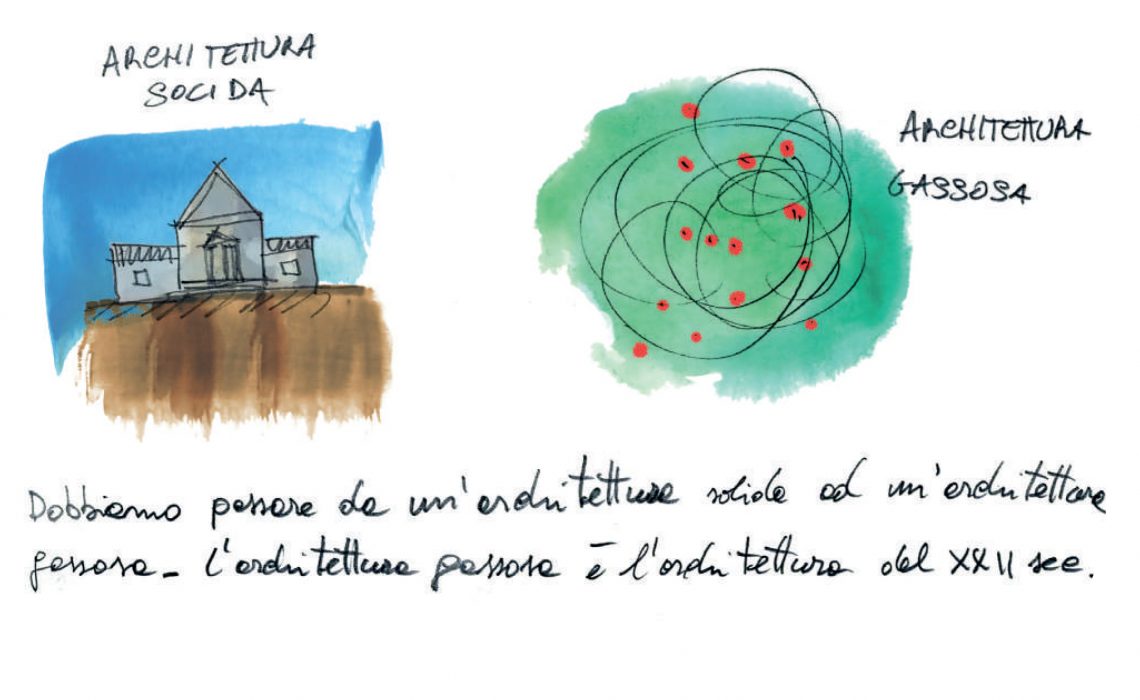 ARCHITETTURA
SOLIDA
ARCHITETTURA
GASSOSA
Dobbiamo passare da un'architettura solida ad un'architettura
gassosa - L'architettura gassosa è l'architettura del XXII sec.